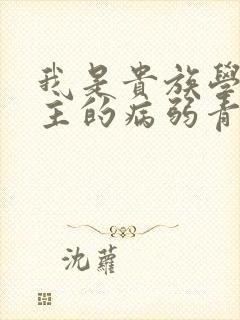 我是貴族學
主的病弱青
沈蘿